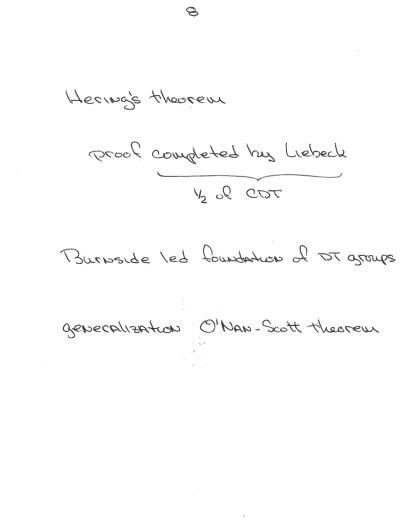 8
Hering's theorem
proof completed by Liebeck
1/2 of CDT
Burnside led foundation of DT groups
generalization O'Nan-Scott theorem